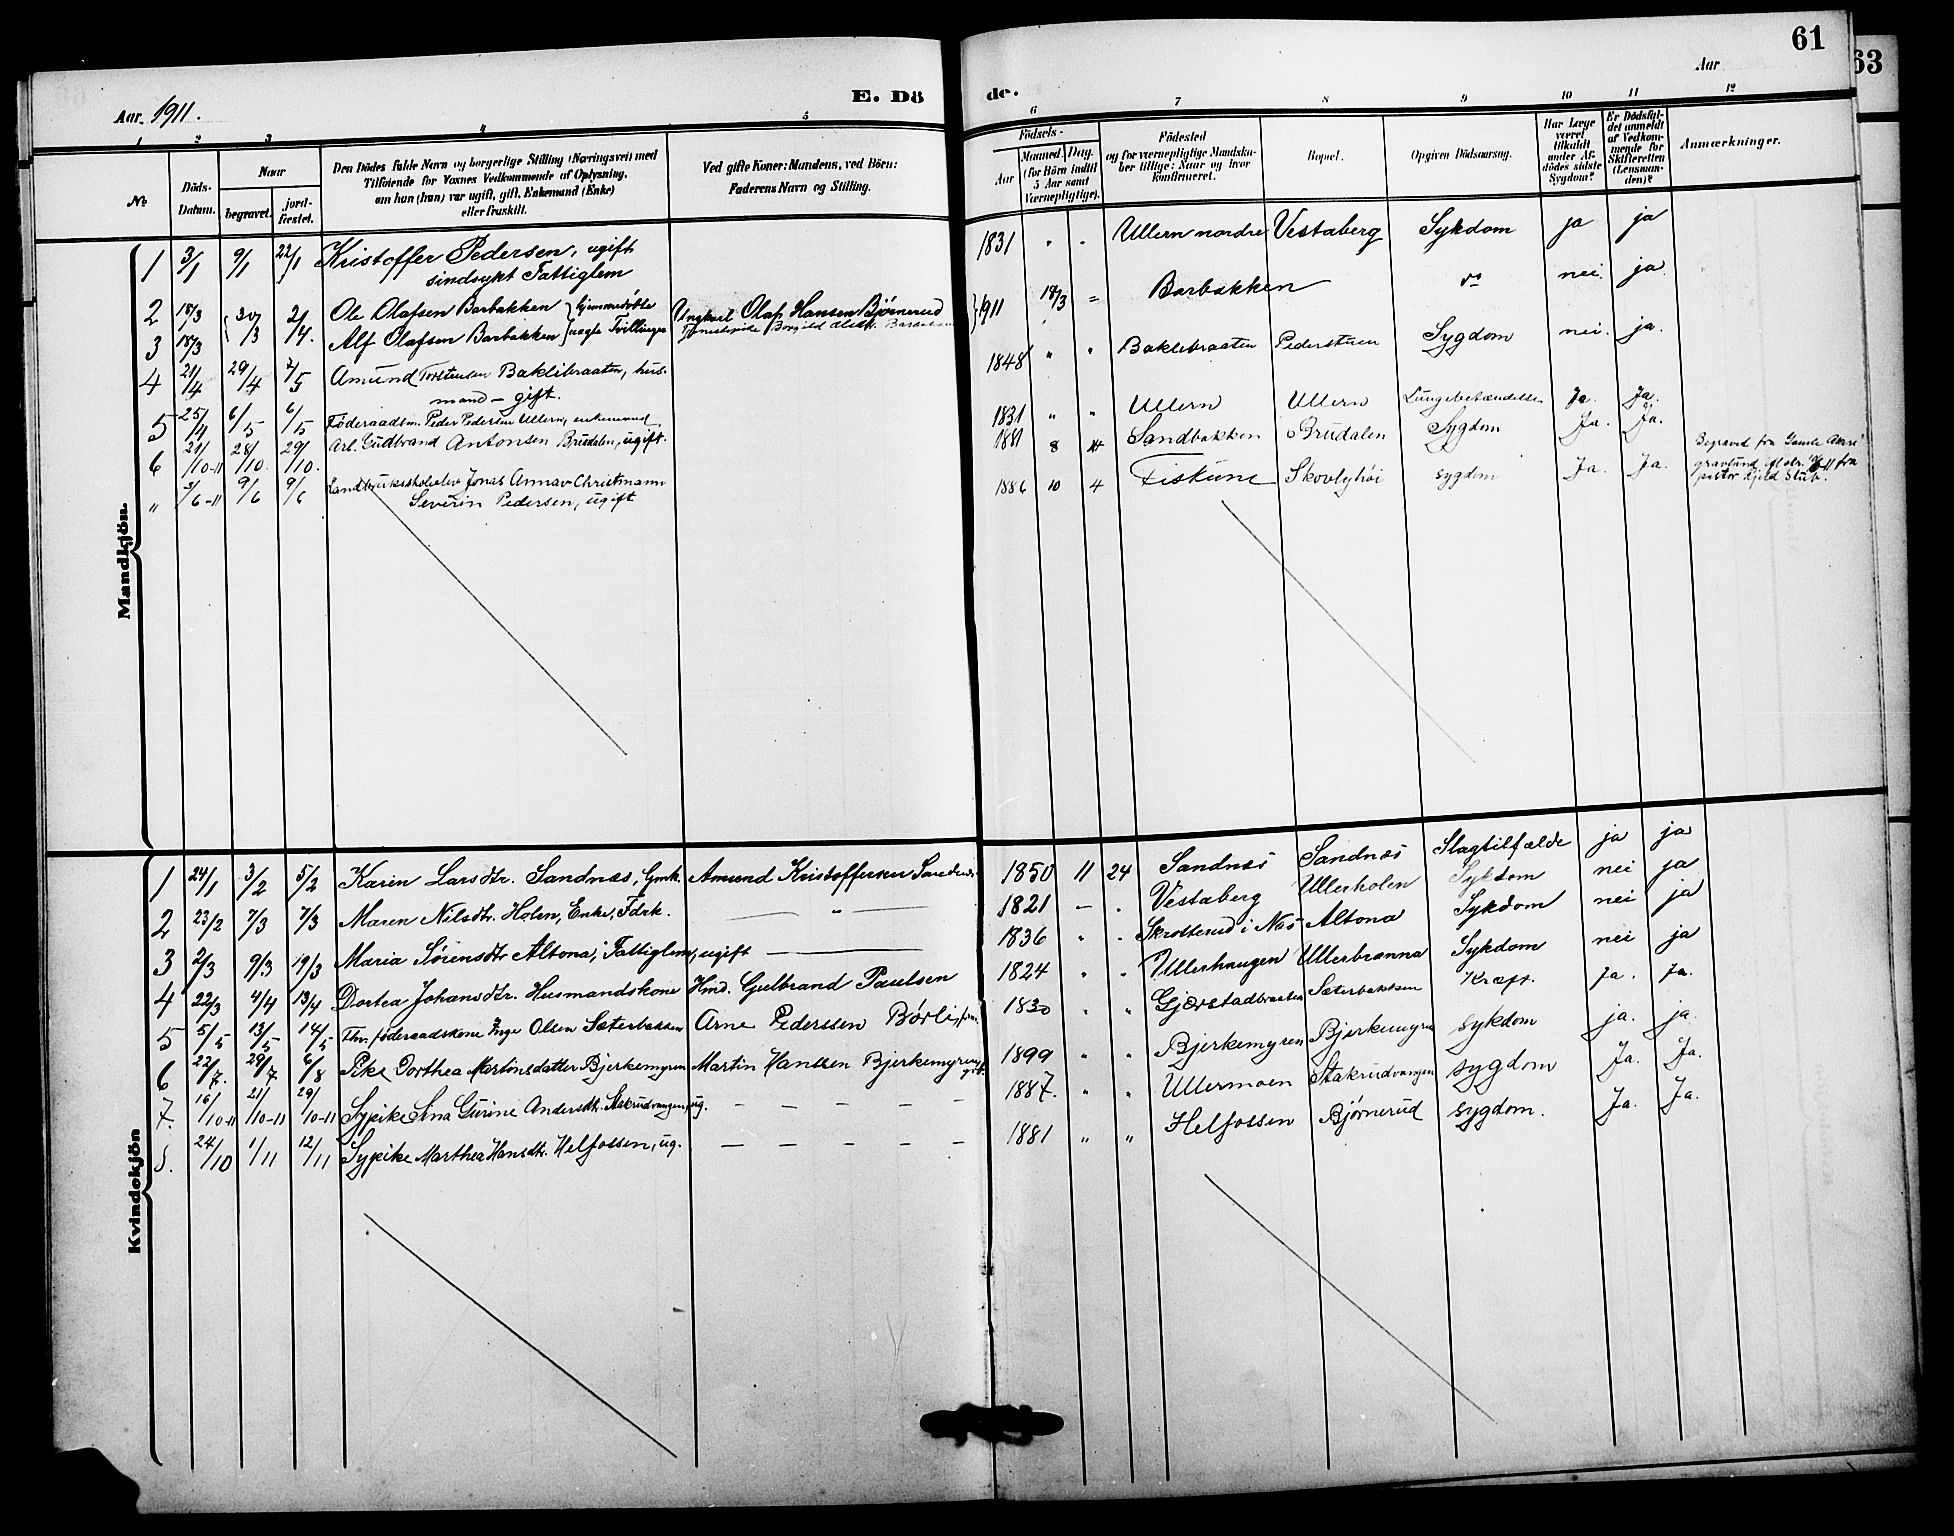 61
63
Aar
Aar. 1911.
E. Dö
de.
1 2 3 4 5
6 7 8 9 10 11 12
No
Döds-Datum.
Naar
begravet.
jord-fæstet.
Den Dödes fulde Navn og borgerlige Stilling (Næringsvei) med
Tilföiende for Voxnes Vedkommende af Oplysning,
om han (hun) var ugift, gift, Enkemand (Enke)
eller fraskilt.
Ved gifte Koner: Mandens, ved Börn:
Faderens Navn og Stilling.
Födsels-
Aar
Maaned. Dag.
(for Börn indtil
5 Aar samt
Værnepligtige).
Födested
og for værnepligtige Mandska-
ber tillige: Naar og hvor
konfirmeret.
Bopæl.
Opgiven Dödsaarsag.
Har Læge
været
tilkaldt
under Af-
dödes sidste
Sygdom?
Er Dödsfal-
det anmeldt
af Vedkom-
mende for
Skifteretten
(Lensman-
den)?
Anmærkninger.
Mandkjön.
1 3/1 9/1 22/1 Kristoffer Pedersen, ugift 1831 " " Ullern nordre Vestaberg Sykdom ja ja
sindsykt Fattiglem
2 18/3 30/3 2/4. Ole Olafsen Barbakken } hjemmedøbte Ungkarl Olaf Hansen Bjørnerud } 1911 18/3 = Barbakken do nei. ja
3 18/3 Alf Olafsen Barbakken } uegte Tvillinger
4 21/4 29/4 7/5 Amund Torstensen Baklibraaten, hus- 1848 " " Baklibraaten Pederstuen Sygdom nei. ja.
mand - gift.
5 25/4 6/5 6/5 Föderaadsm. Peder Pedersen Ullern, enkemand 1831 " " Ullern Ullern Lungebetændelse Ja. Ja.
6 21/10-11 28/10 29/10. Arb. Gudbrand Antonsen Brudalen, ugift. 1881 8 Sandbakken Brudalen Sygdom Ja. Ja.
" 3/6-11 9/6 9/6 Landbruksskoleelev Jonas Annar Christmann 1886 10 4 Fiskum Skovlyhöi sygdom Ja. Ja. Begravet fra Gamle Akers
gravlund fra
pastor Kjeld Stub.
Severin Pedersen, ugift
Kvindekjön
1 24/1 3/2 5/2 Karen Larsdtr. Sandnæs, Gmk. Amund Kristoffersen 1850 11 24 Sandnæs Sandnæs Slagtilfælde ja ja
2 23/2 7/3 7/3 Maren Nilsdtr. Holen, Enke, Fdrk. — " — 1821 - . Vestaberg Ullerholen Sykdom nei ja
3 2/3 9/3 19/3 Maria Sørensdtr Altona, Fattiglem, ugift — 1836 . . Skrotterud i Nes Altona Sykdom nei ja
4 22/3 4/4 13/4 Dortea Johansdtr. Husmandskone Hmd. Gulbrand Paulsen 1824 " " Ullerhaugen Ullerbrænna Sykdom nei ja
5 5/5 13/5 14/5 Fhv. föderaadskone Inge Olsen Sæterbakken Arne Pederssen Börli, 1830 . " Gjærstadbraaten Sæterbakken Kræft. ja. ja.
6 22/7. 29/7 6/8 Pike Dorthea Martinsdatter Bjerkemyren Martin Hanssen Bjerkemyren, 1899 " " Bjerkemyren Bjerkemyren sykdom ja. ja.
7. 16/10-11 21/10-11 29/10-11 Sypike Anna Gurine Andersdtr. Stakrudvangen, ug. — — — — — 1887. " " Ullermoen Stakrudvangen sygdom Ja. Ja.
8. 24/10 1/11 12/11 Sypike Marthea Hansdtr. Helfossen, ug. — — — — — 1881 " " Helfossen Bjørnerud sygdom. Ja. Ja.